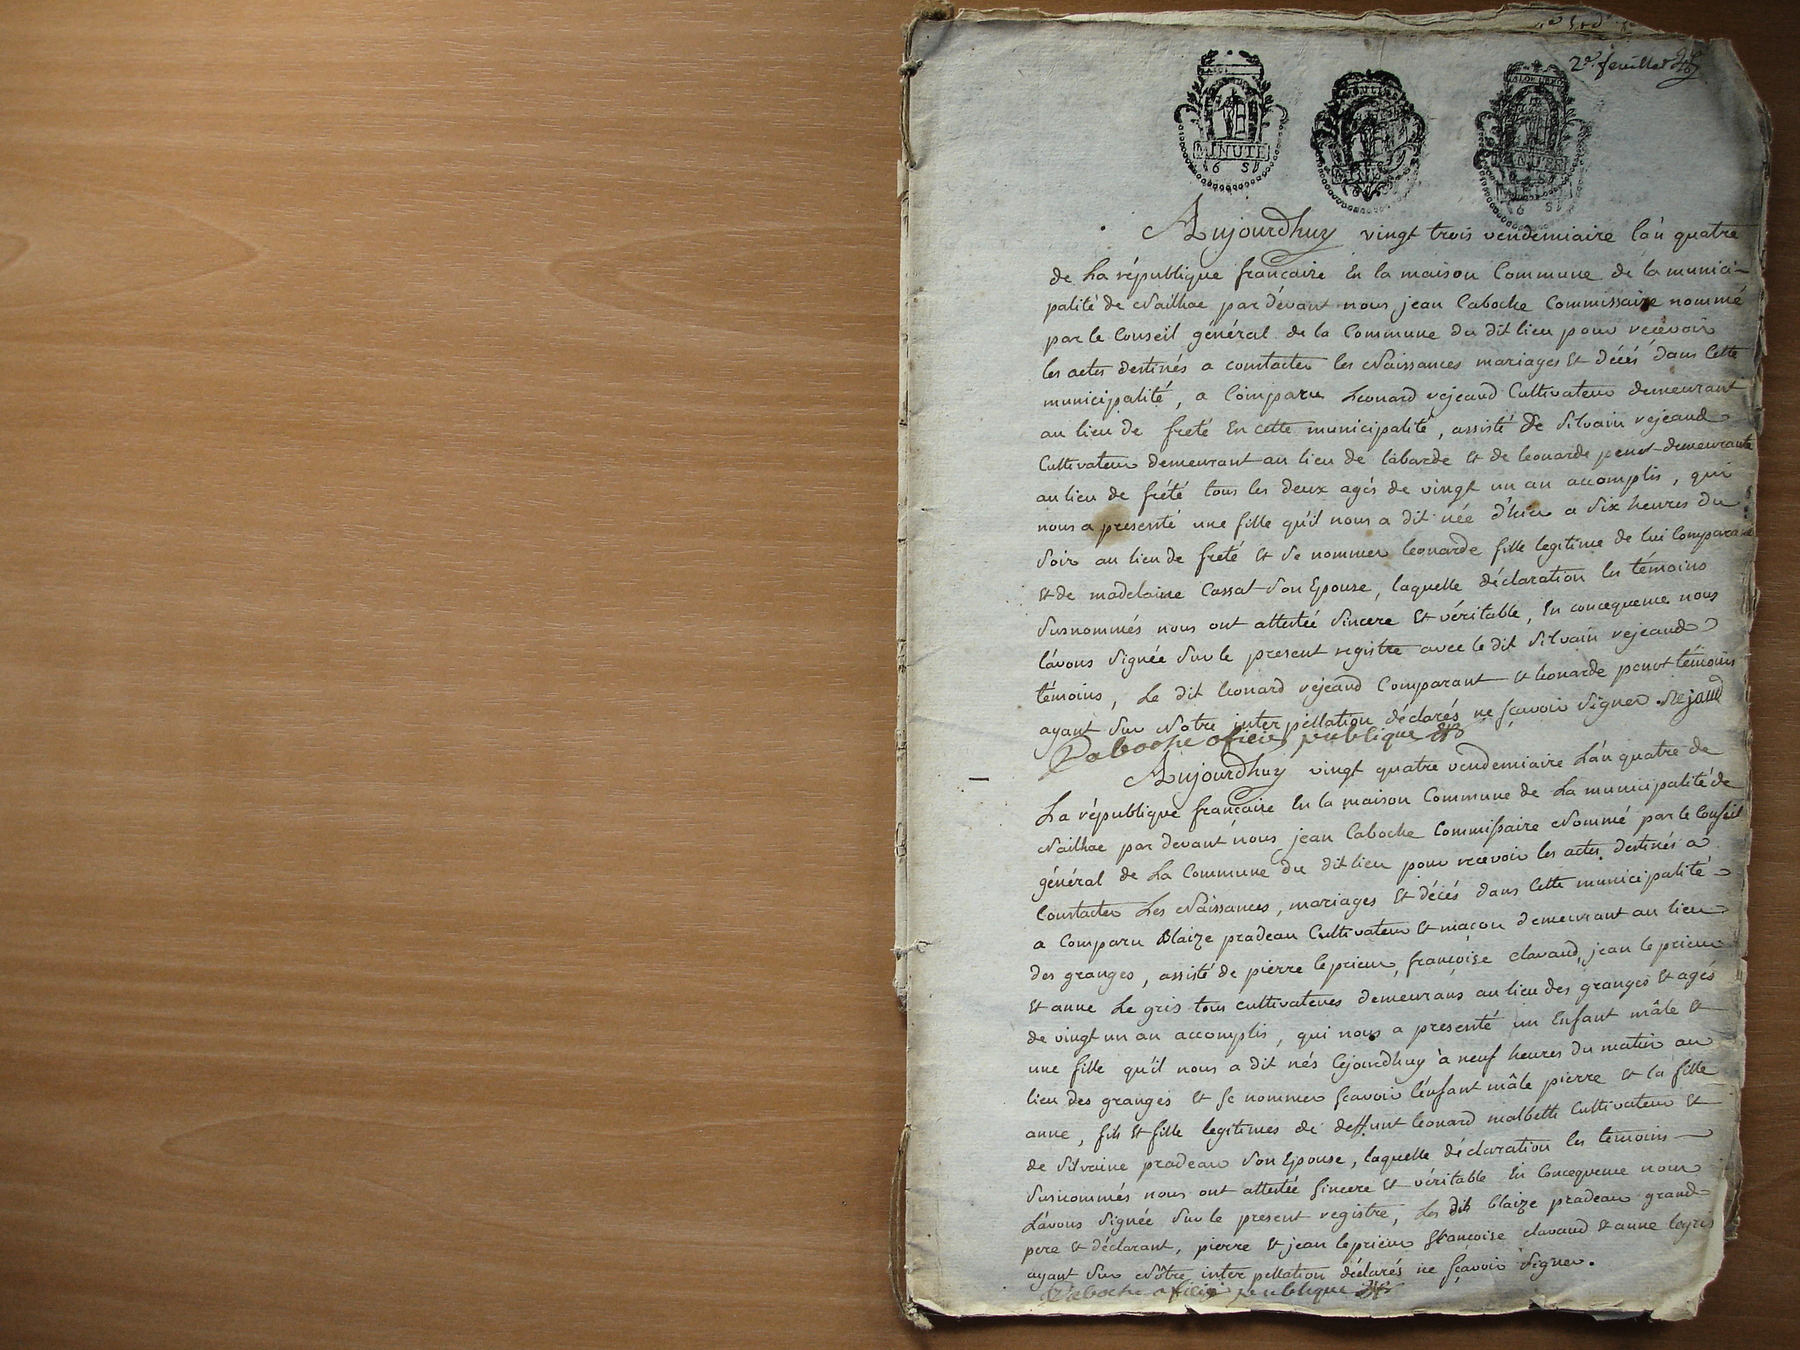 2e feuillet
MINUTE
6 S
MINUTE
6 S
Aujourdhuy vingt trois vendemiaire l'an quatre
de La république française En la maison Commune de la munici-
palité de Nailhac par devant nous jean Caboche Commissaire nommé
par le Conseil général de la Commune du dit lieu pour recevoir
les actes destinés a constater les Naissances mariages Et décés dans Cette
municipalité, a Comparu Leonard vejeaud Cultivateur demeurant
au lieu de freté En cette municipalité, assisté de Silvain vejeaud
Cultivateur demeurant au lieu de labarde Et de leonarde penot demeurante
au lieu de frété tous les deux agés de vingt un an accomplis, qui
nous a presenté une fille qu'il nous a dit née d'hier a Six heures du
Soir au lieu de freté Et Se nommer leonarde fille legitime de lui Comparant
Et de madelaine Cassat Son Epouse, laquelle déclaration les témoins
Susnommés nous ont attestée Sincere Et véritable, En concequence nous
l'avons Signée Sur le present registre avec le dit Silvain vejeaud
témoins, Le dit leonard vejeaud Comparant Et leonarde penot témoins
ayant Sur Notre interpellation déclarés ne sçavoir Signer. Vejaud
Caboche oficier publique
Aujourdhuy vingt quatre vendemiaire L'an quatre de
La république française En la maison Commune de La municipalité de
Nailhac par devant nous jean Caboche Commissaire Nommé par le Conseil
général de La Commune du dit lieu pour recevoir les actes destinés a
Constater Les Naissances, mariages Et décés dans Cette municipalité
a Comparu Blaize pradeau Cultivateur Et maçon demeurant au lieu
des granges, assisté de pierre leprieur, françoise clavaud, jean le prieur
Et anne Le gris tous cultivateurs demeurans au lieu des granges Et agés
de vingt un an accomplis, qui nous a presenté un Enfant mâle Et
une fille qu'il nous a dit nés Cejourdhuy à neuf heures du matin au
lieu des granges Et Se nommer sçavoir l'enfant mâle pierre Et la fille
anne, fils Et fille legitimes de deffunt leonard malbette Cultivateur Et
de Silvaine pradeau Son Epouse, laquelle déclaration les temoins
Susnommés nous ont attestée Sincere Et véritable En Concequence nous
L'avons Signée Sur le present registre, Les dits blaize pradeau grand-
pere Et déclarant, pierre Et jean leprieur françoise clavaud Et anne legris
ayant Sur Nôtre interpellation déclarés ne sçavoir Signer.
Caboche oficier publique